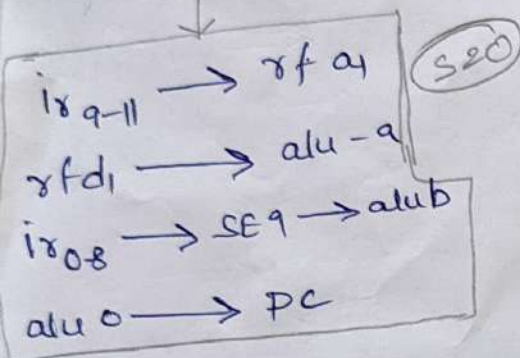 ir 9-11 → rf a1
S20
rfd1 → alu-a
ir 0-8 → SE9 → alub
alu o → PC